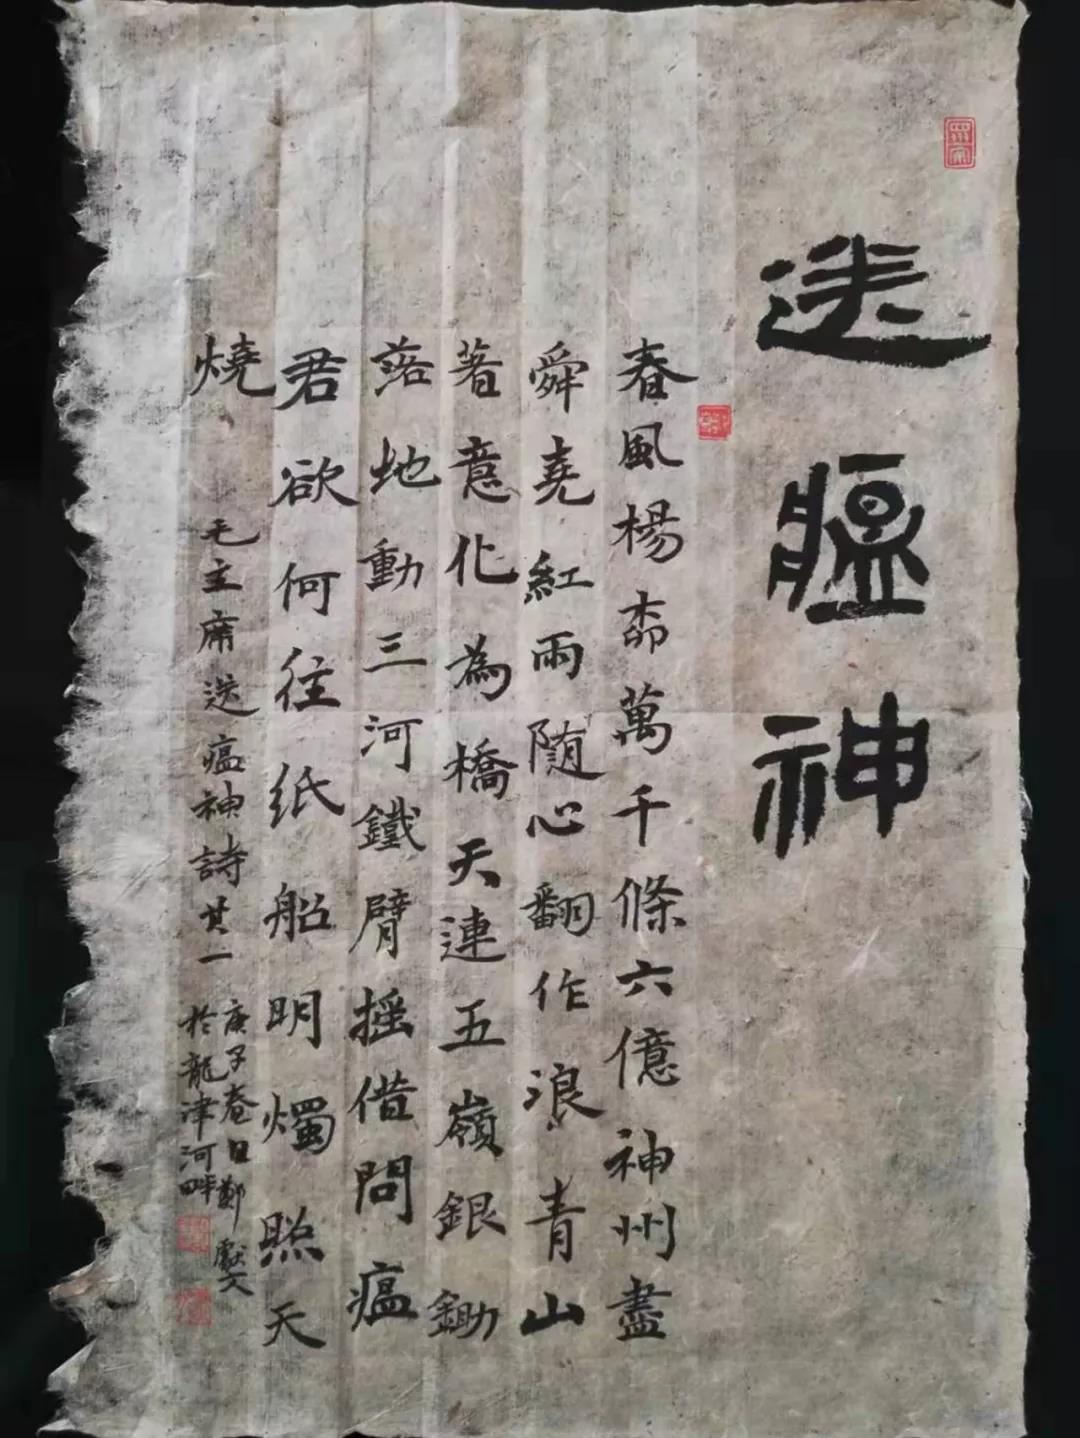 送瘟神
春風楊柳萬千條六億神州盡
舜堯紅雨随心翻作浪青山
著意化為橋天連五嶺銀鋤
落地動三河鐵臂摇借問瘟
君欲何往紙船明燭照天
燒
毛主席送瘟神詩其一
庚子春日鄭獻文
於龍津河畔